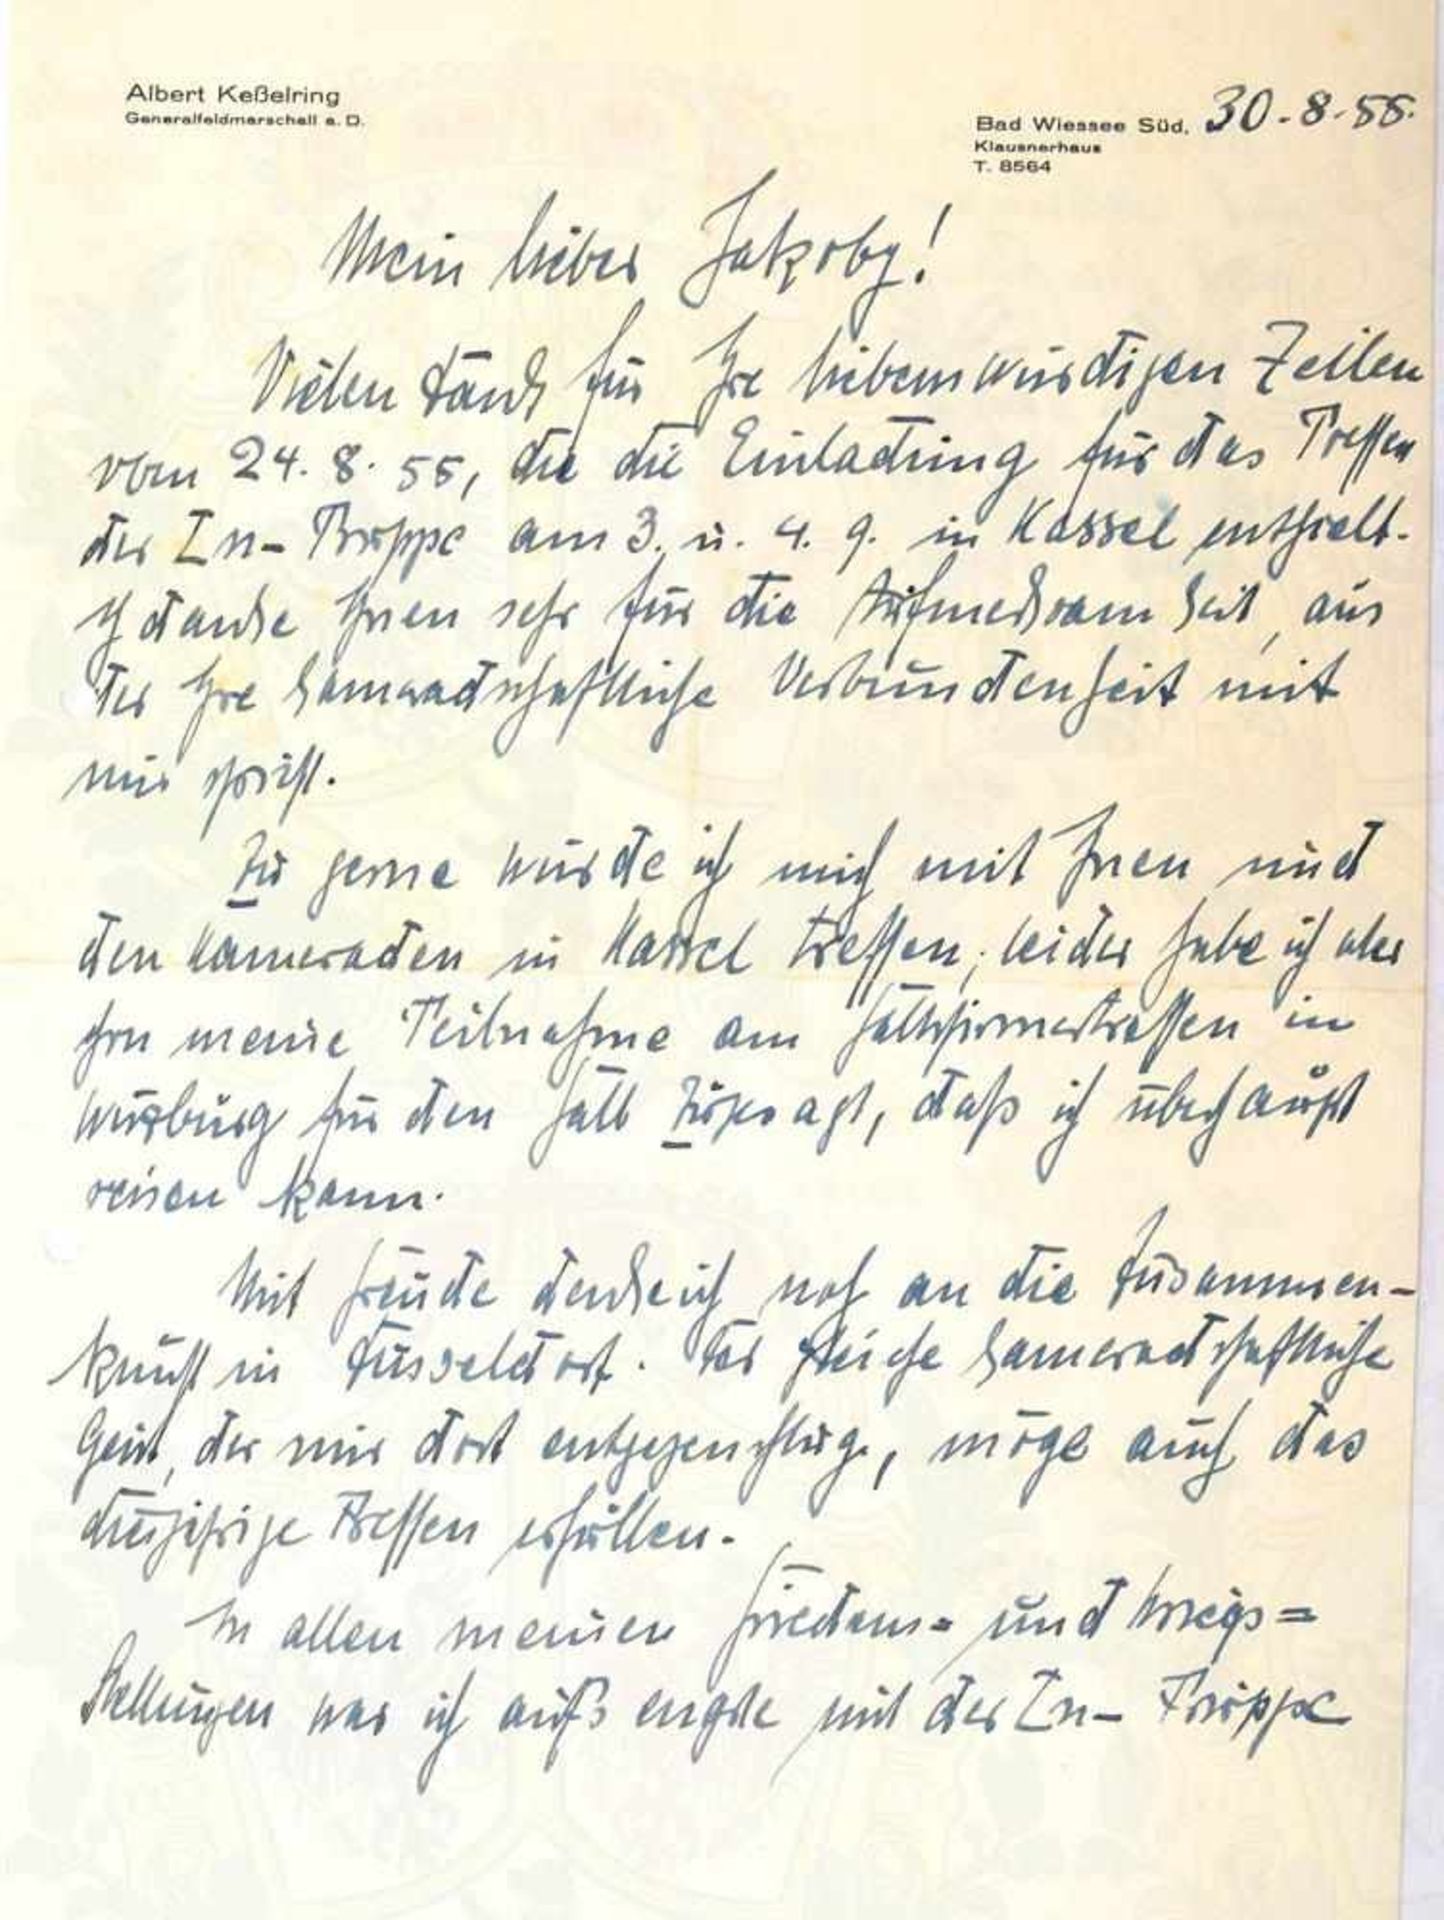 Albert Keßelring
Generalfeldmarschall a. D.
Bad Wiessee Süd, 30.8.55.
Klausnerhaus
T. 8564
Mein lieber Jakoby!
Vielen Dank für Ihre liebenswürdigen Zeilen
vom 24.8.55, die die Einladung für das Treffen
der Ln-Truppe am 3. u. 4. 9. in Kassel enthielt.
Ich danke Ihnen sehr für die Aufmerksamkeit, aus
der Ihre kameradschaftliche Verbundenheit mit
mir spricht.
Zu gerne würde ich mich mit Ihnen und
den Kameraden in Kassel treffen; leider habe ich aber
schon meine Teilnahme am Fallschirmertreffen in
Würzburg für den Fall zugesagt, daß ich überhaupt
reisen kann.
Mit Freude denke ich noch an die Zusammen-
kunft in Düsseldorf. Der gleiche kameradschaftliche
Geist, der mir dort entgegenschlug, möge auch das
diesjährige Treffen erfüllen.
In allen meinen Friedens= und Kriegs=
Stellungen war ich aufs engste mit der Ln-Truppe